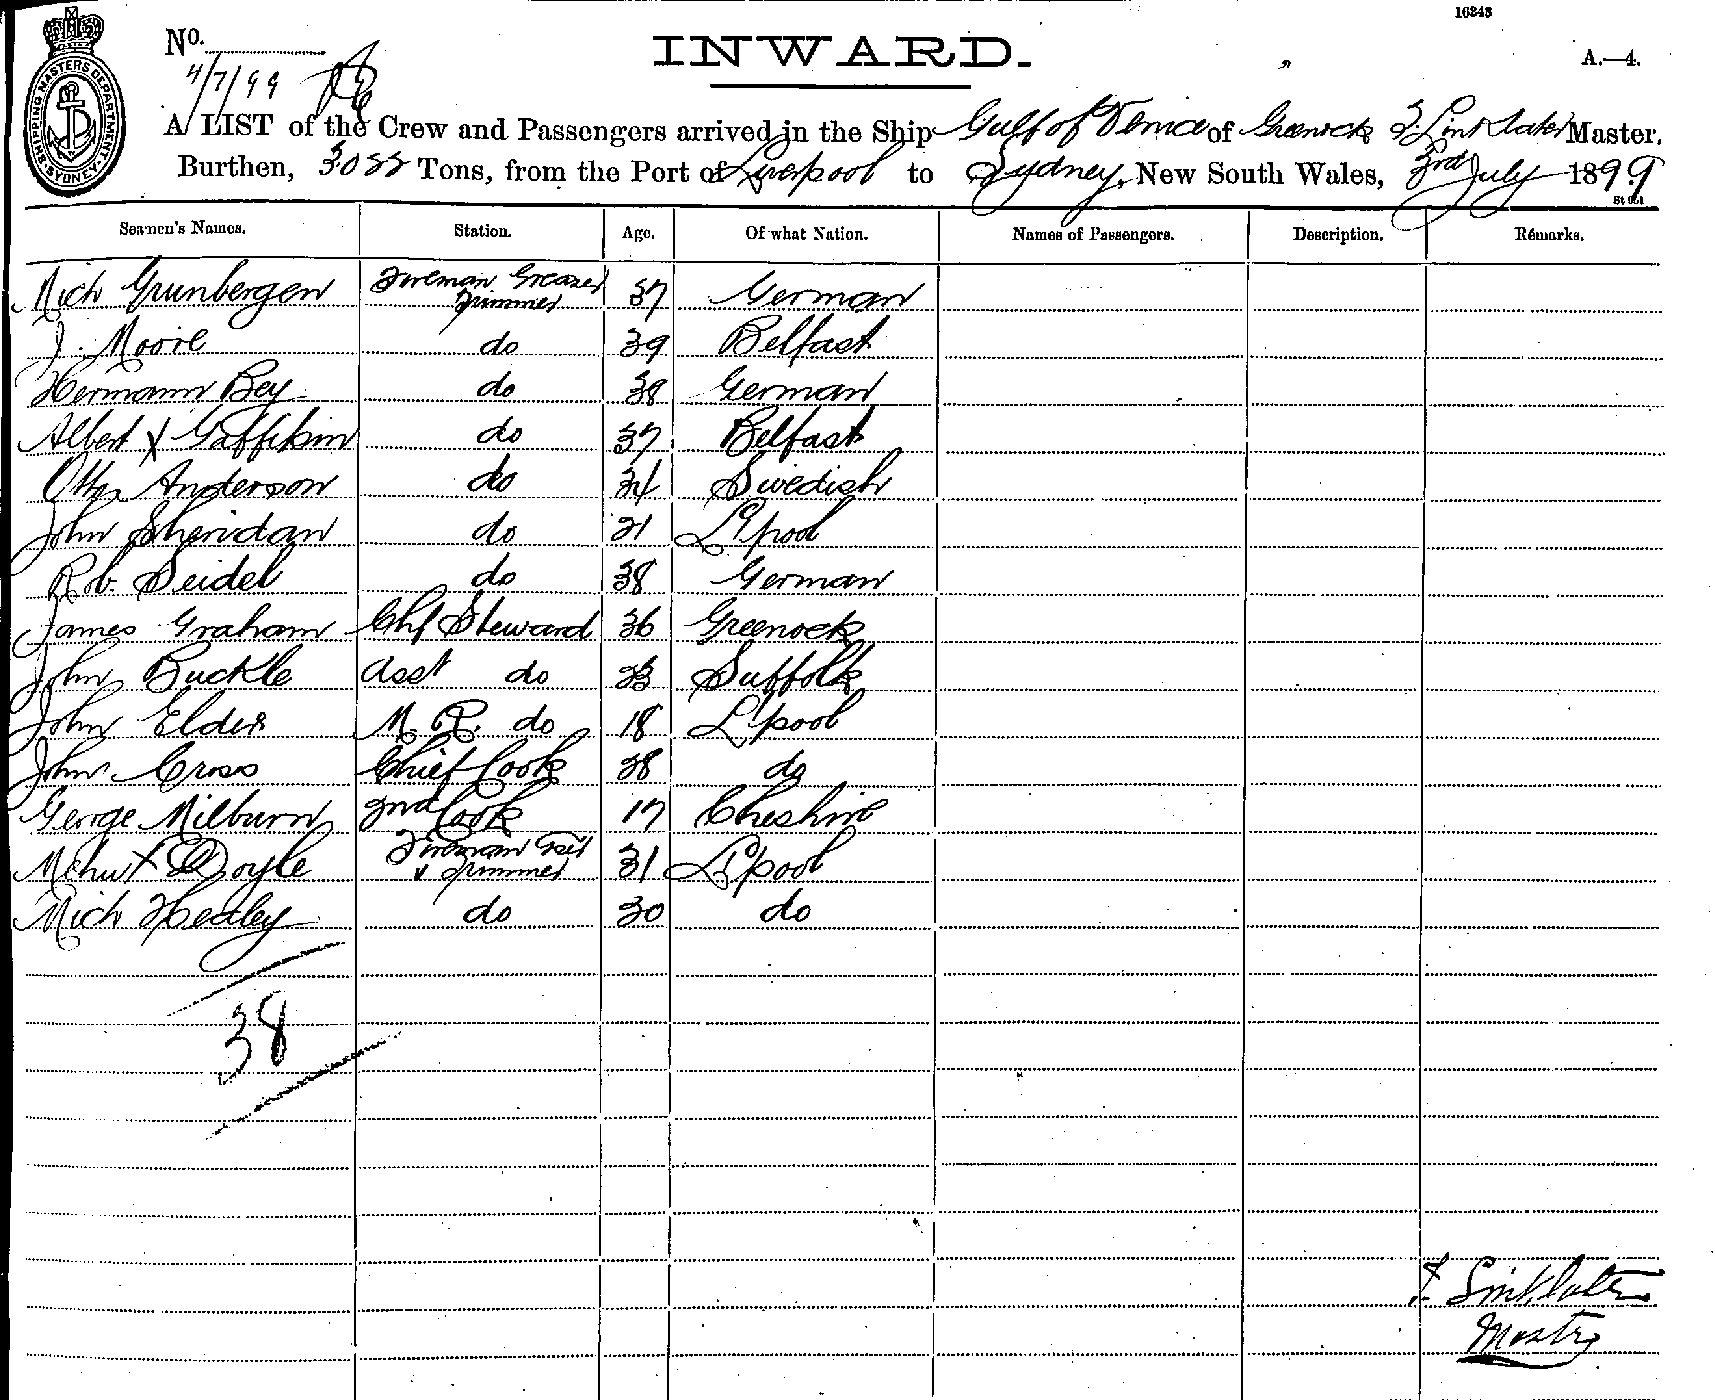 16343
No.
INWARD.
A.—4.
4/7/99
SHIPPING MASTERS DEPARTMENT. SYDNEY
A LIST of the Crew and Passengers arrived in the Ship Gulf of Venice of Greenock Linklater Master,
Burthen, 3022 Tons, from the Port of Liverpool to Sydney, New South Wales, 3rd July 1899
Seamen's Names. Station. Age. Of what Nation. Names of Passengers. Description. Remarks.
Mich Grunbergen Fireman Greaser Trimmer 37 German
J. Moore do 39 Belfast
Hermann Bey do 38 German
Albert X Gaffikin do 37 Belfast
Otto Anderson do 24 Swedish
John Sheridan do 21 L'pool
Rob. Seidel do 38 German
James Graham Chf Steward 36 Greenock
John Buckle Asst do 23 Suffolk
John Elder M. R. do 18 L'pool
John Cross Chief Cook 28 do
George Milburn 2nd Cook 17 Cheshire
X Doyle Fireman & Trimmer 31 L'pool
Mich Healey do 30 do
38
Linklater
Master